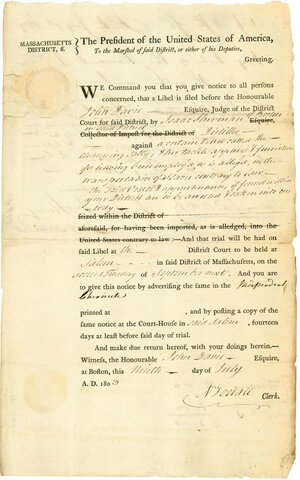 MASSACHUSETTS
DISTRICT, ſſ.
The President of the United States of America,
To the Marſhal of ſaid Diſtrict, or either of his Deputies,
Greeting.
WE Command you that you give notice to all persons
concerned, that a Libel is filed before the Honourable
John Davis Esquire, Judge of the District
Court for said District, by Isaac Sherman of Boston
Esquire,
in said District
Collector of Impost for the District of
against a certain called the
Sally, her tackle, apparel & furniture
for having been employed, as is alleged, in the
transportation of contrary to law
the said Court if found within
your District
today
seized within the District of
aforesaid, for having been imported, as is alledged, into the
United States contrary to law: And that trial will be had on
said Libel at the District Court to be held at
Salem in said District of Massachusetts, on the
second Tuesday of September next. And you are
to give this notice by advertiſing the same in the Independent
Chronicle
printed at , and by posting a copy of the
same notice at the Court-House in said Salem, fourteen
days at least before said day of trial.
And make due return hereof, with your doings herein.
Witness, the Honourable John Davis Esquire,
at Boston, this Ninth day of July
A. D. 1803
Clerk.